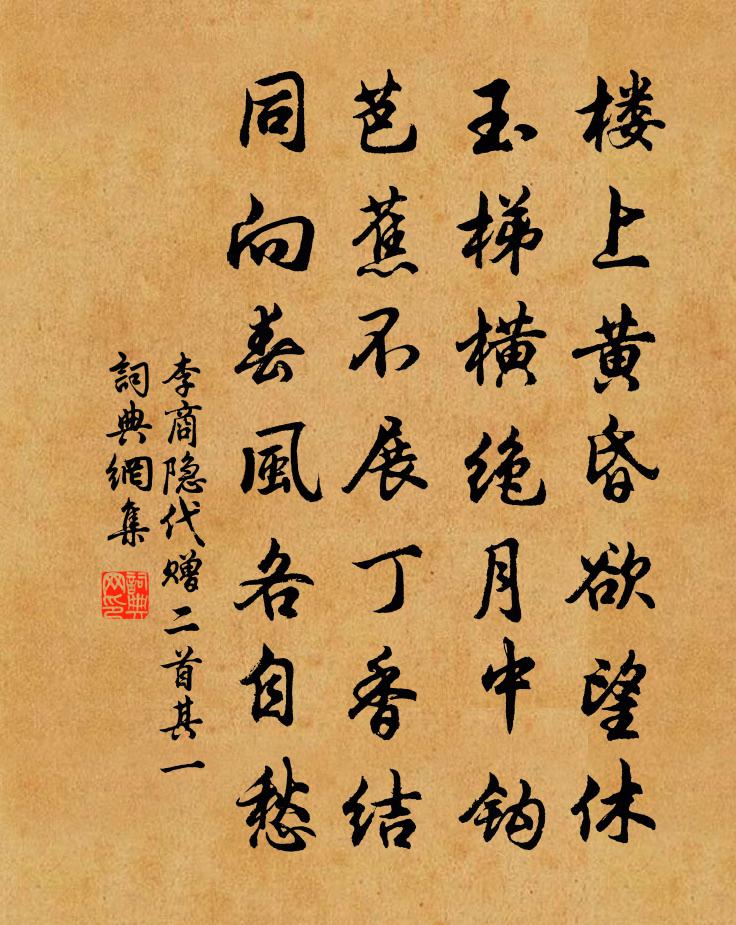 楼上黄昏欲望休
玉梯横绝月中钩
芭蕉不展丁香结
同向春風各自愁
李商隐代赠二首其一
詞典網集
詞典网印